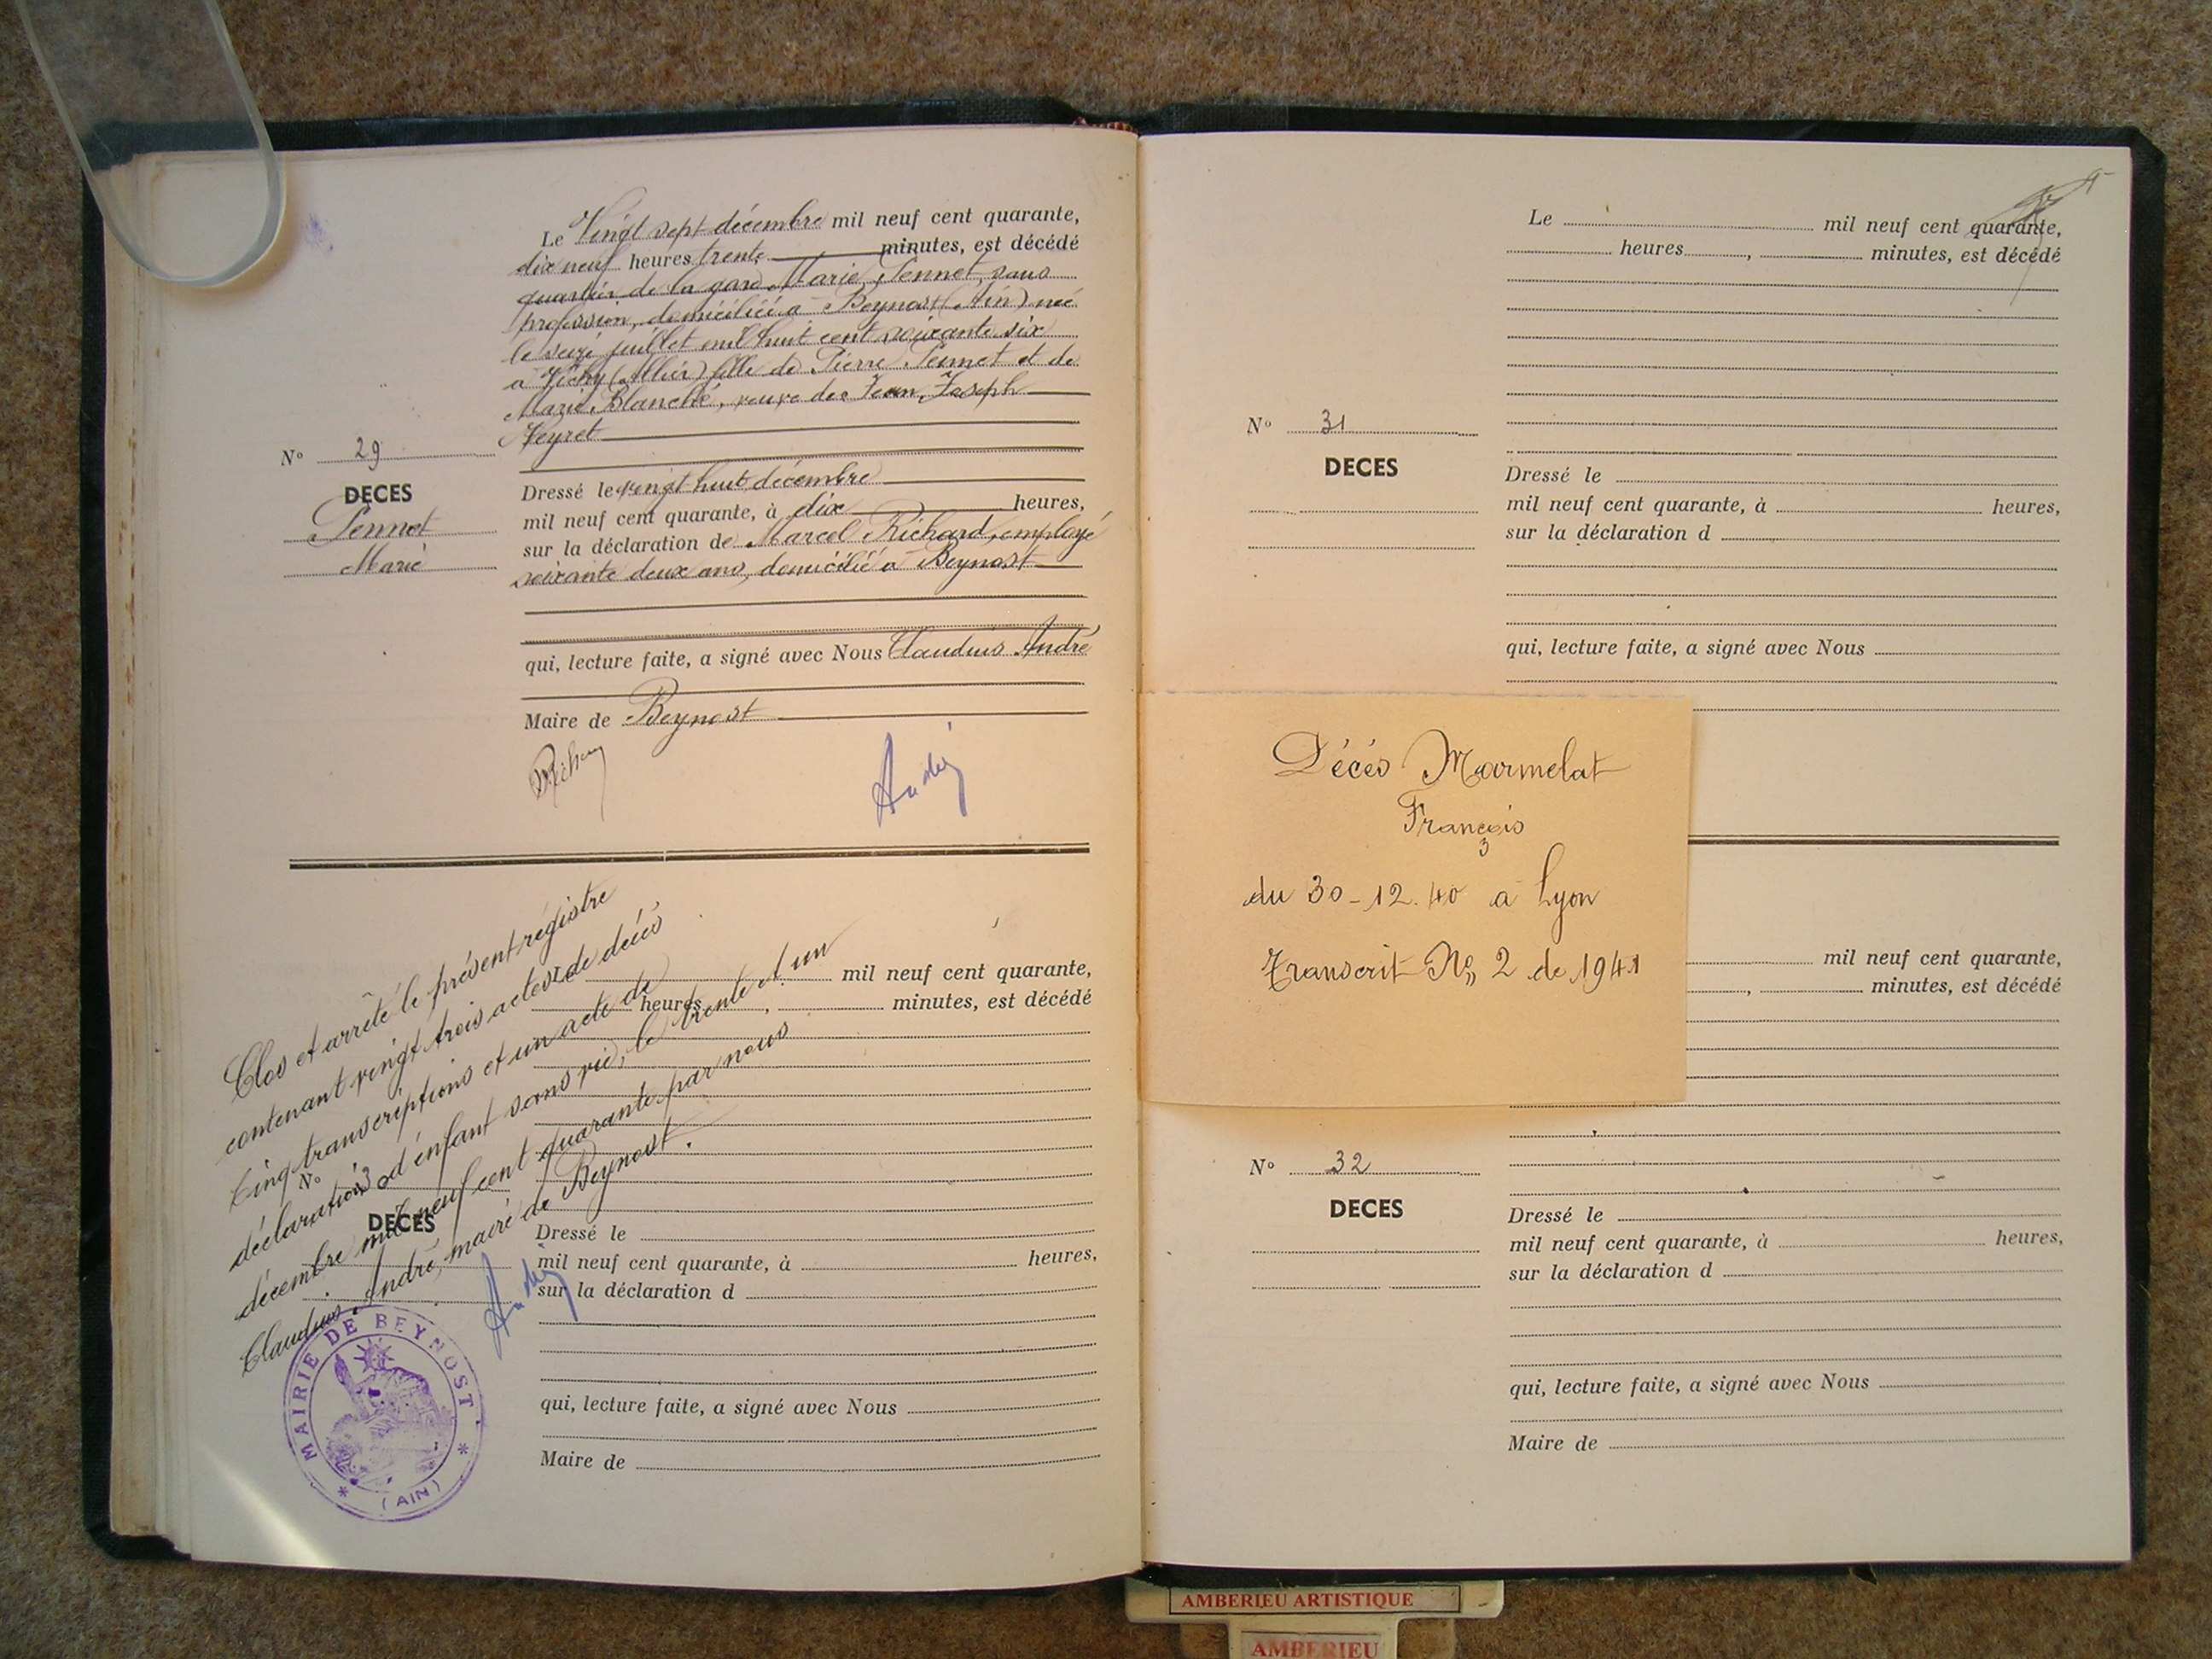 Le Vingt sept décembre mil neuf cent quarante,
dix neuf heures trente minutes, est décédé
quartier de la gare Marie Pennet, sans
profession, domiciliée à Beynost (Ain) née
le seize juillet mil huit cent soixante six
à Vichy (Allier) fille de Pierre Pennet et de
Marie Blanche, veuve de Jean Joseph
Veyret
No 29
DECES
Pennet
Marie
Dressé le vingt huit décembre
mil neuf cent quarante, à dix heures,
sur la déclaration de Marcel Richard, employé
soixante deux ans, domicilié à Beynost
qui, lecture faite, a signé avec Nous Claudius André
Maire de Beynost
André
Clos et arrêté le présent régistre
contenant vingt trois actes de décès
cinq transcriptions et un acte de
déclaration d'enfant sans vie, le trente et un
décembre mil neuf cent quarante par nous
Claudius André, maire de Beynost.
André
mil neuf cent quarante,
heures, minutes, est décédé
No
DECES
Dressé le
mil neuf cent quarante, à heures,
sur la déclaration d
qui, lecture faite, a signé avec Nous
Maire de
MAIRIE DE BEYNOST
* (AIN) *
Le mil neuf cent quarante,
heures, minutes, est décédé
No 31
DECES
Dressé le
mil neuf cent quarante, à heures,
sur la déclaration d
qui, lecture faite, a signé avec Nous
Décés Marmelat
François
du 30-12.40 à Lyon
Transcrit No 2 de 1941
mil neuf cent quarante,
, minutes, est décédé
No 32
DECES
Dressé le
mil neuf cent quarante, à heures,
sur la déclaration d
qui, lecture faite, a signé avec Nous
Maire de
AMBERIEU ARTISTIQUE
AMBERIEU